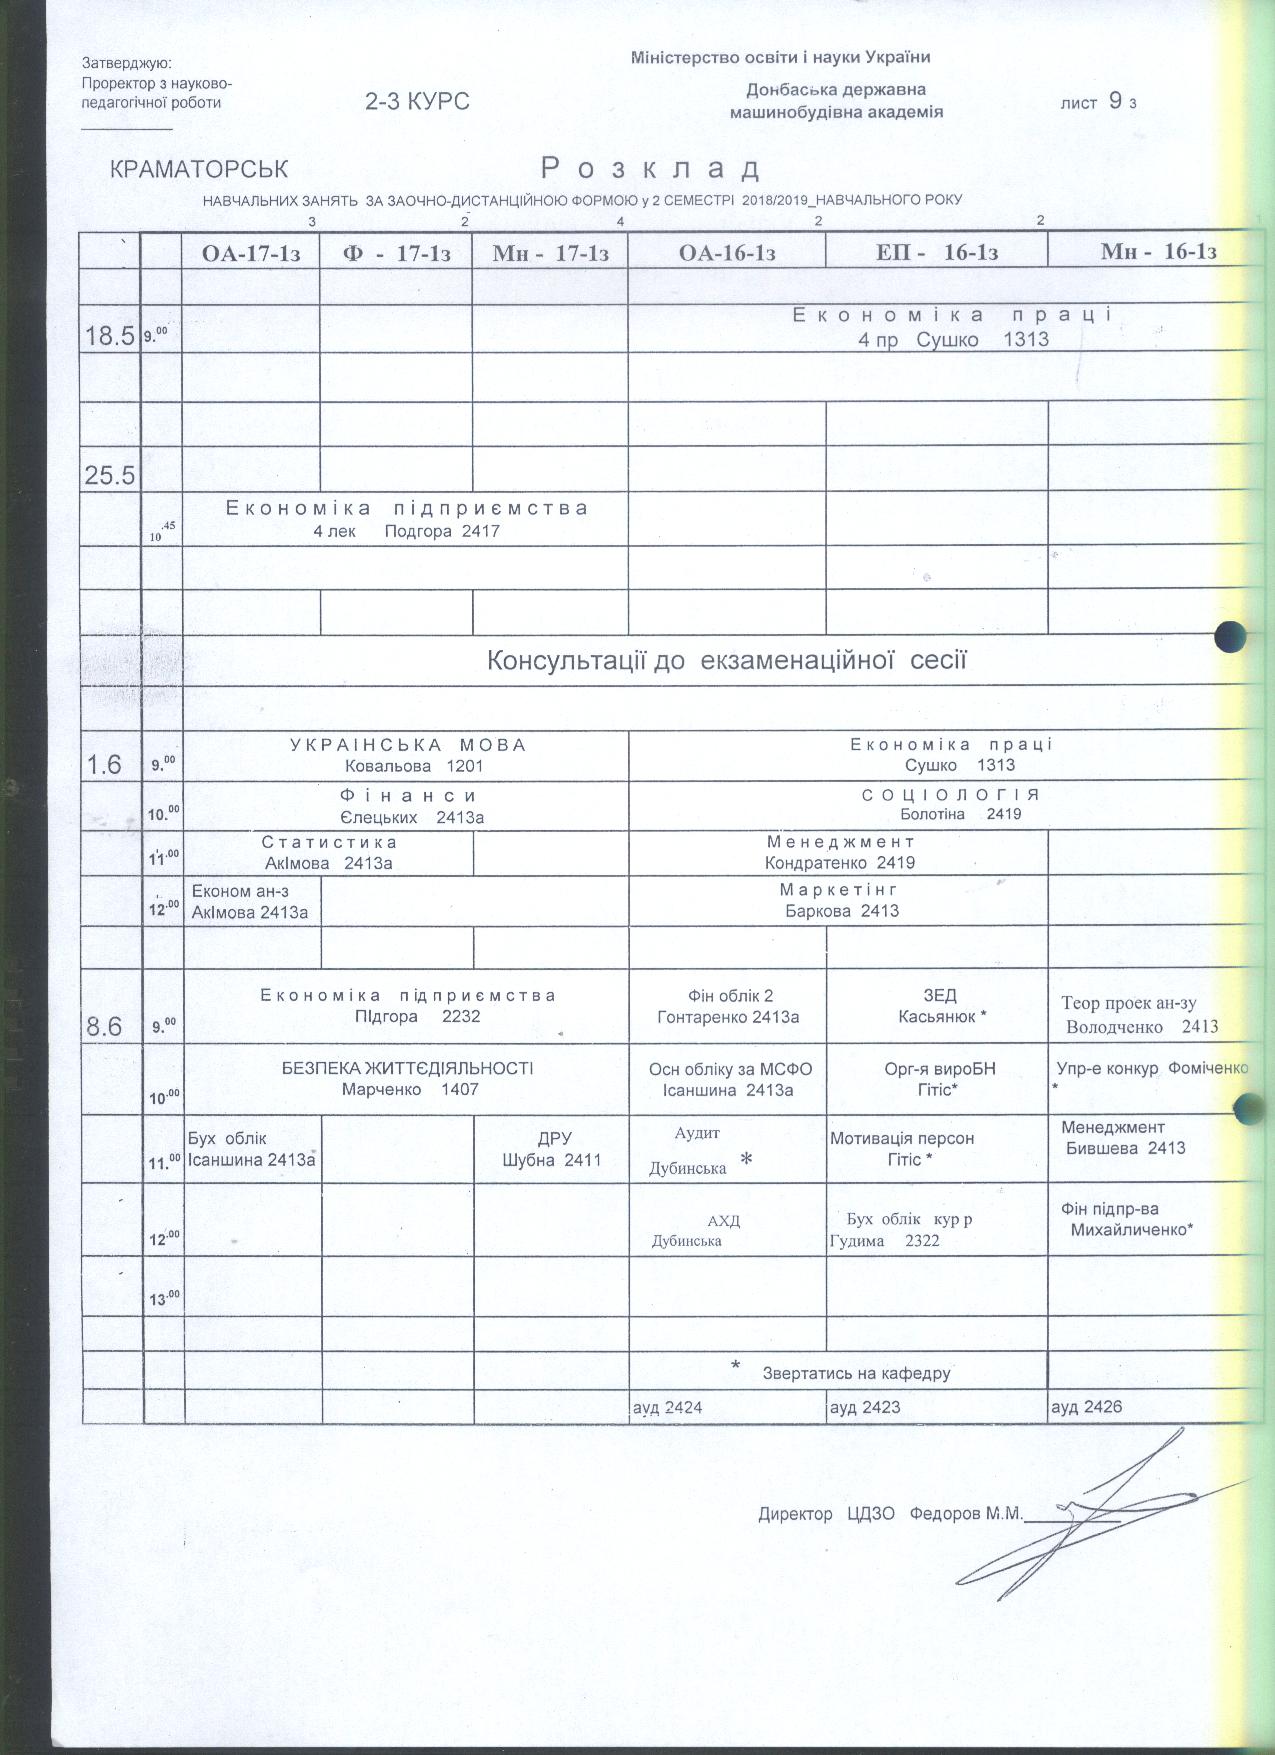 Затверджую:
Проректор з науково-
педагогічної роботи
2-3 КУРС
Міністерство освіти і науки України
Донбаська державна
машинобудівна академія
лист 9 з
КРАМАТОРСЬК
Р о з к л а д
НАВЧАЛЬНИХ ЗАНЯТЬ ЗА ЗАОЧНО-ДИСТАНЦІЙНОЮ ФОРМОЮ у 2 СЕМЕСТРІ 2018/2019_НАВЧАЛЬНОГО РОКУ
3 2 4 2 2
ОА-17-1з Ф - 17-1з Мн - 17-1з ОА-16-1з ЕП - 16-1з Мн - 16-1з
Е к о н о м і к а п р а ц і
18.5 9.00 4 пр Сушко 1313
25.5
Е к о н о м і к а п і д п р и є м с т в а
10.45 4 лек Подгора 2417
Консультації до екзаменаційної сесії
УКРАІНСЬКА МОВА Е к о н о м і к а п р а ц і
1.6 9.00 Ковальова 1201 Сушко 1313
Ф і н а н с и С О Ц І О Л О Г І Я
10.00 Єлецьких 2413а Болотіна 2419
С т а т и с т и к а М е н е д ж м е н т
11.00 АкІмова 2413а Кондратенко 2419
Економ ан-з М а р к е т і н г
12.00 АкІмова 2413а Баркова 2413
Е к о н о м і к а п ід п р и є м с т в а Фін облік 2 ЗЕД Теор проек ан-зу
8.6 9.00 ПІдгора 2232 Гонтаренко 2413а Касьянюк * Володченко 2413
БЕЗПЕКА ЖИТТЄДІЯЛЬНОСТІ Осн обліку за МСФО Орг-я вироБН Упр-е конкур Фоміченко
10.00 Марченко 1407 Ісаншина 2413а Гітіс* *
Бух облік ДРУ Аудит Мотивація персон Менеджмент
11.00 Ісаншина 2413а Шубна 2411 Дубинська * Гітіс * Бившева 2413
АХД Бух облік кур р Фін підпр-ва
12.00 Дубинська Гудима 2322 Михайличенко*
13.00
* Звертатись на кафедру
ауд 2424 ауд 2423 ауд 2426
Директор ЦДЗО Федоров М.М.